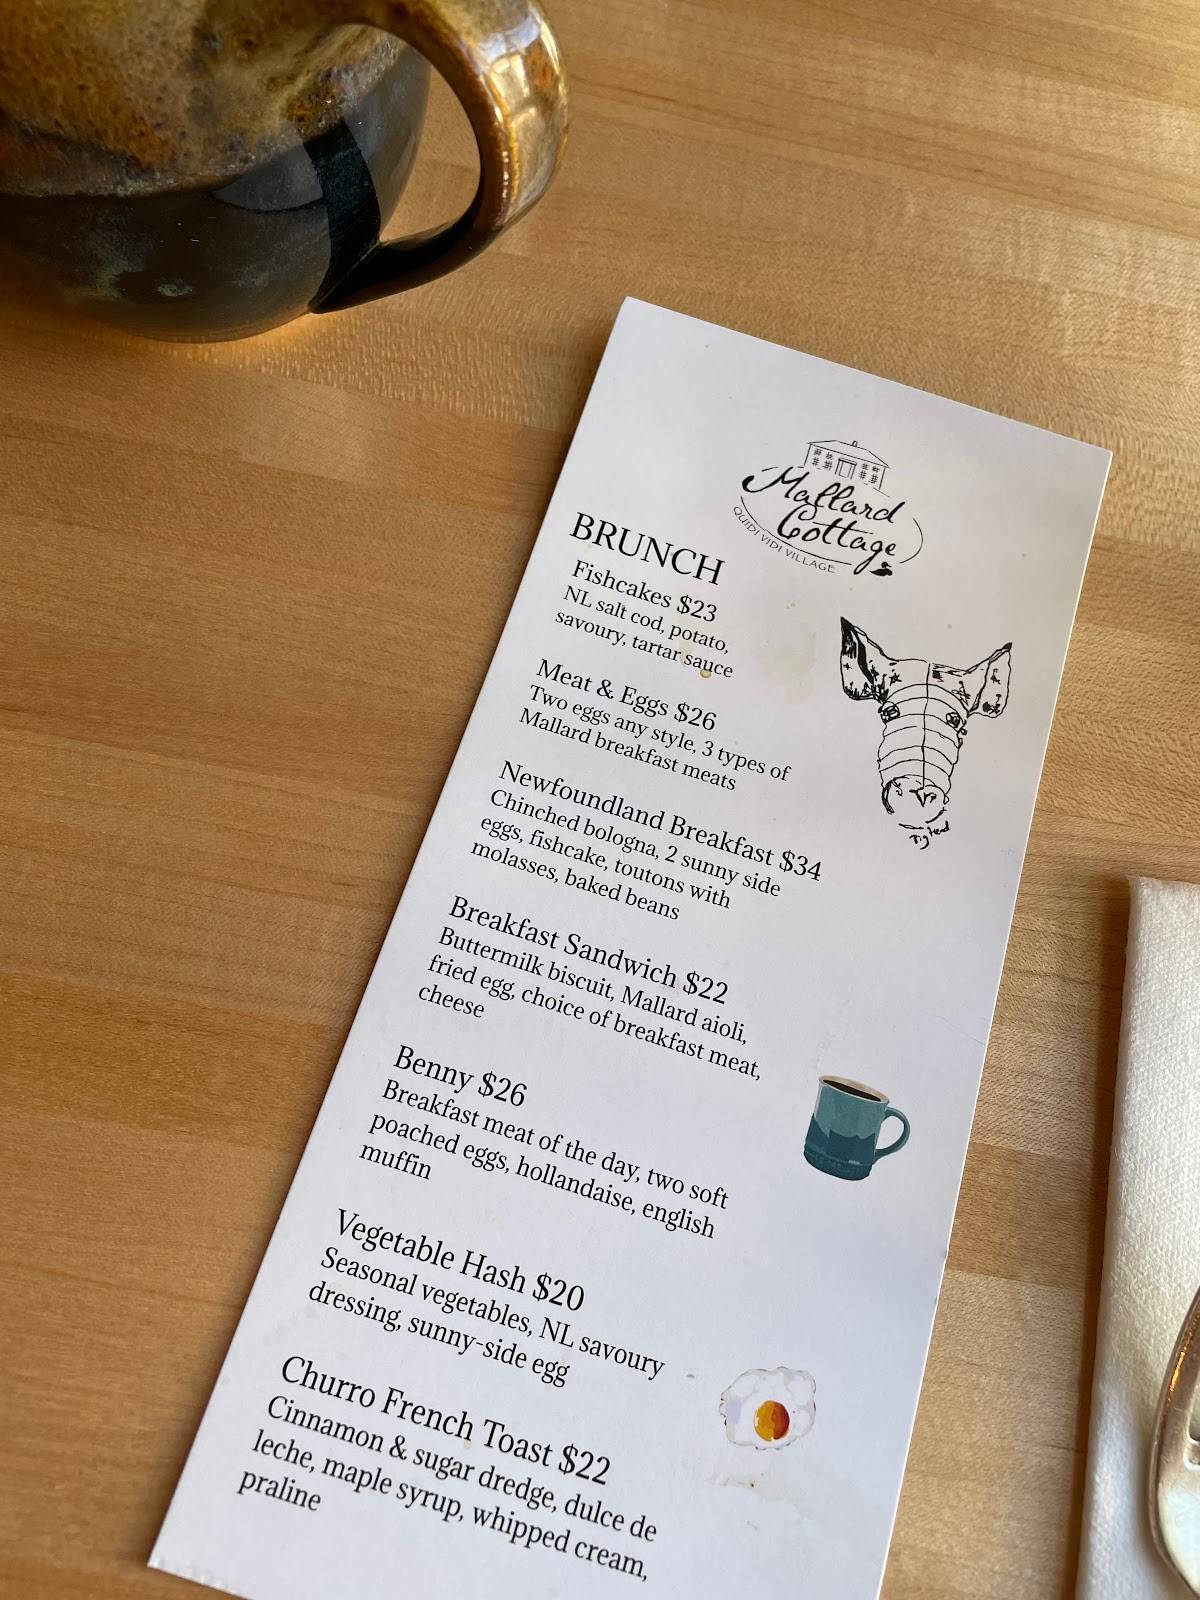 Mallard
Cottage
QUIDI VIDI VILLAGE
BRUNCH
Fishcakes $23
NL salt cod, potato,
savoury, tartar sauce
Meat & Eggs $26
Two eggs any style, 3 types of
Mallard breakfast meats
Newfoundland Breakfast $34
Chinched bologna, 2 sunny side
eggs, fishcake, toutons with
molasses, baked beans
Breakfast Sandwich $22
Buttermilk biscuit, Mallard aioli,
fried egg, choice of breakfast meat,
cheese
Benny $26
Breakfast meat of the day, two soft
poached eggs, hollandaise, english
muffin
Vegetable Hash $20
Seasonal vegetables, NL savoury
dressing, sunny-side egg
Churro French Toast $22
Cinnamon & sugar dredge, dulce de
leche, maple syrup, whipped cream,
praline
Pig Head